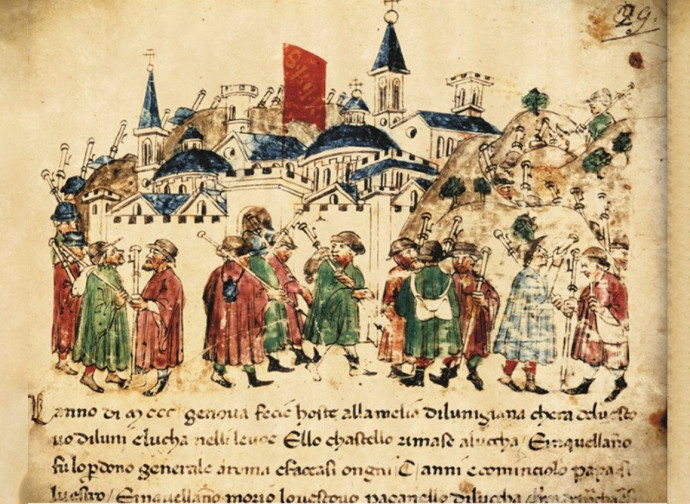 29.
Lanno di mccc genoua fecie hoste allamelia dilunigiana chera deluesco
uo diluni elucha nelli Ello chastello rimase alucha / Einquellano
fu lo pdono generale aroma efaccasi ongni C / anni ecominciolo papa si
luestro / Einquellano morio louescouo paganello dilucha